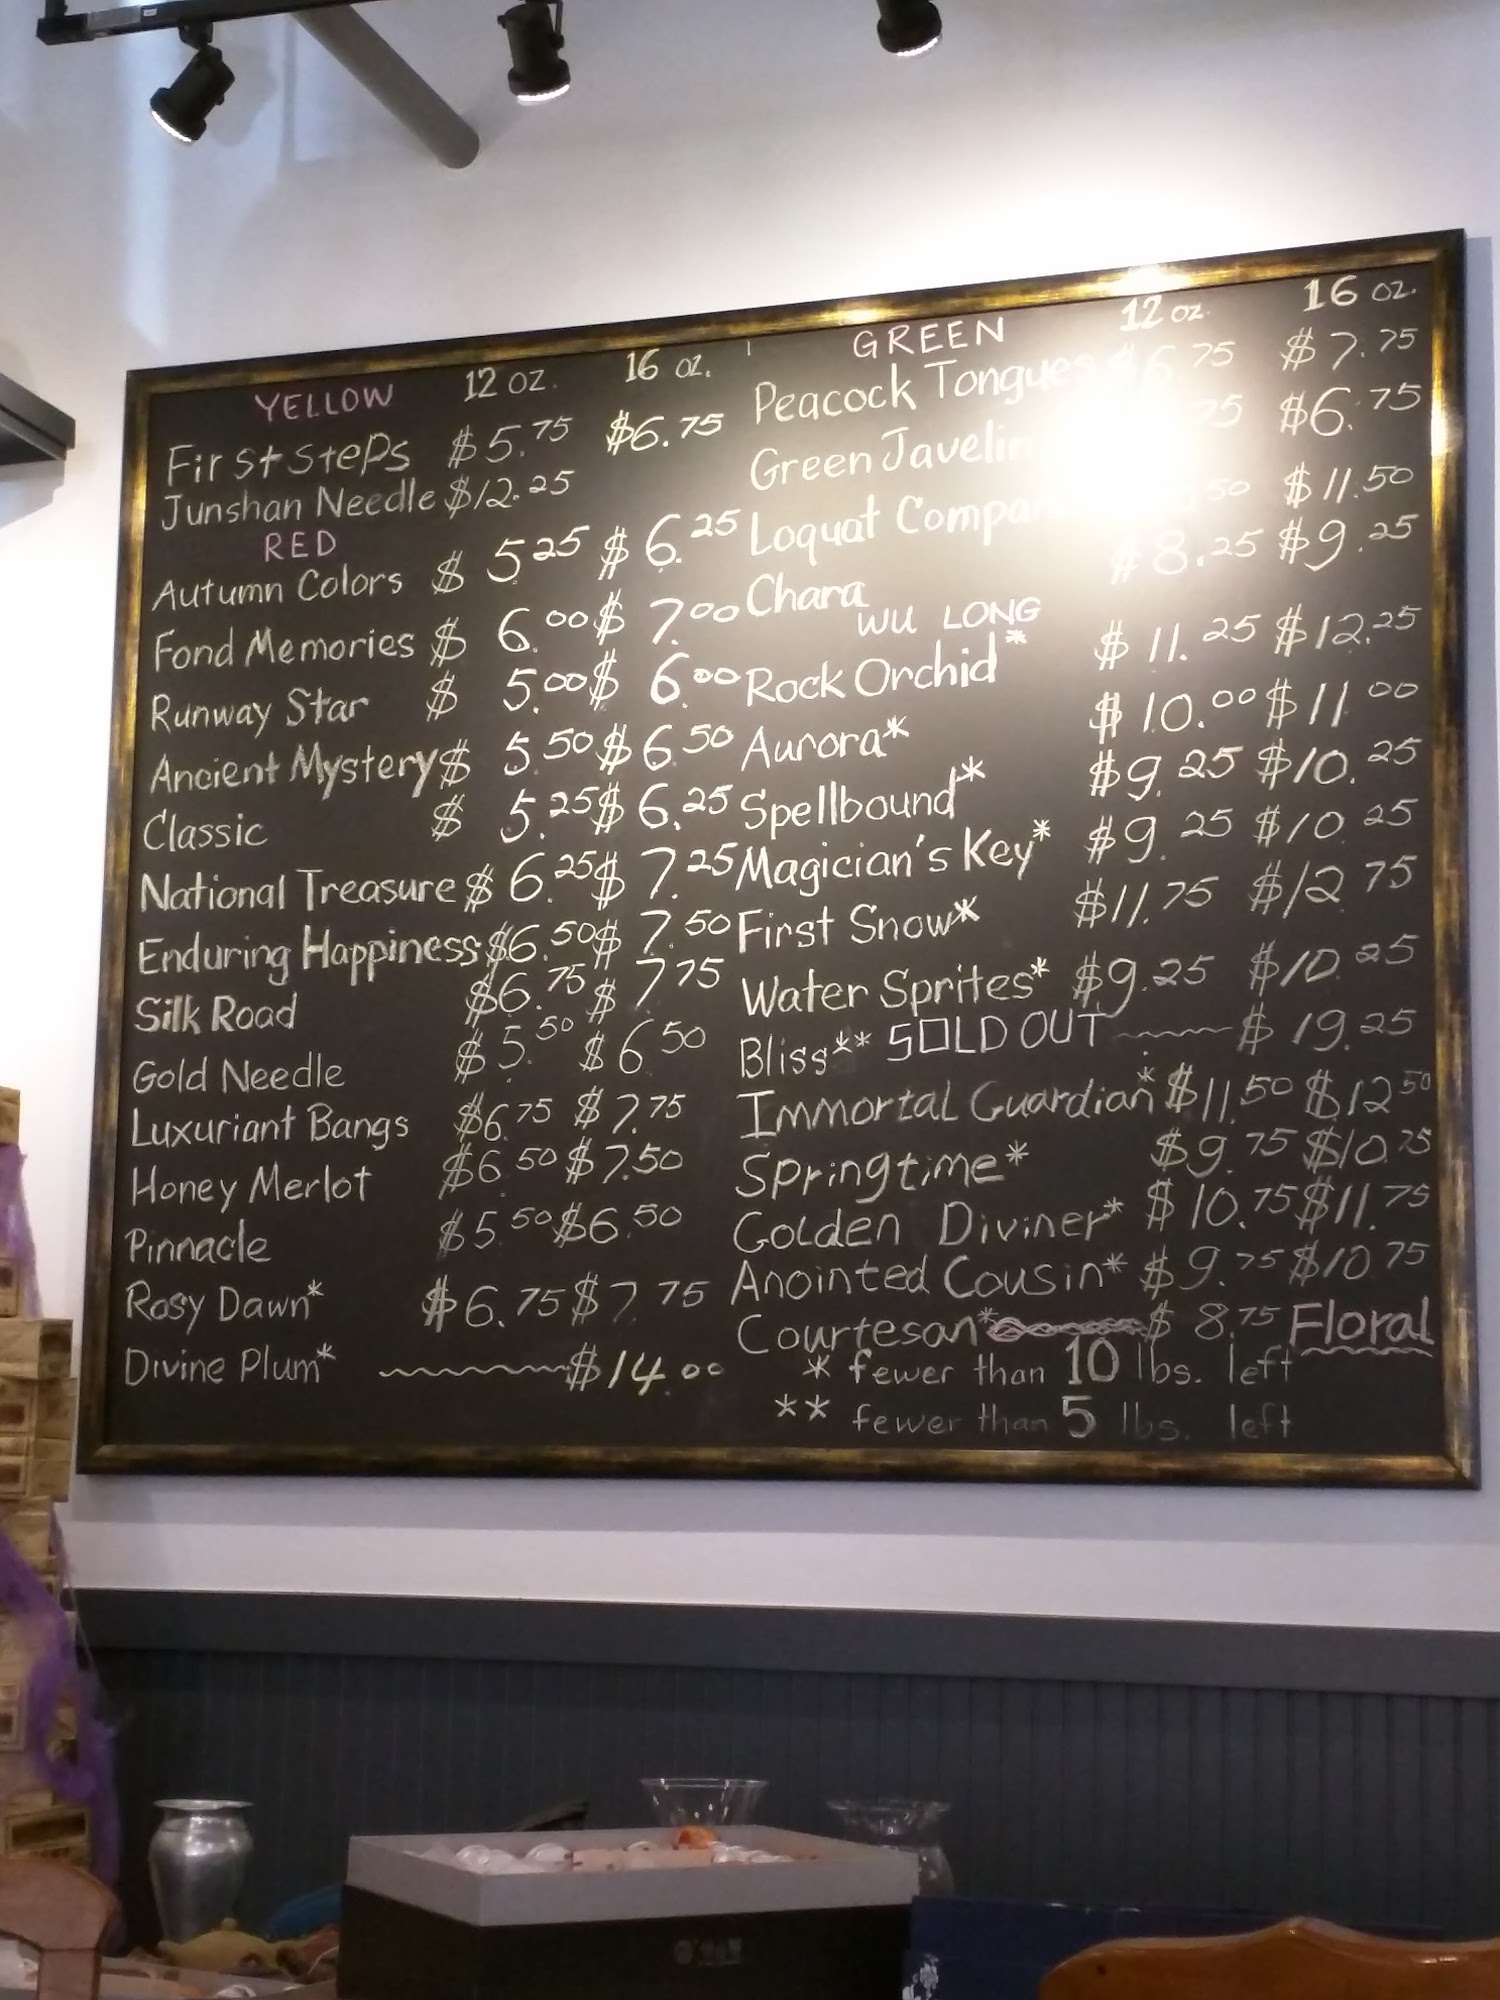 YELLOW 12 oz. 16 oz.
First Steps $5.75 $6.75
Junshan Needle $12.25
RED
Autumn Colors $ 5.25 $ 6.25
Fond Memories $ 6.00 $ 7.00
Runway Star $ 5.00 $ 6.00
Ancient Mystery $ 5.50 $ 6.50
Classic $ 5.25 $ 6.25
National Treasure $ 6.25 $ 7.25
Enduring Happiness $6.50 $ 7.50
Silk Road $6.75 $ 7.75
Gold Needle $5.50 $6.50
Luxuriant Bangs $6.75 $7.75
Honey Merlot $6.50 $7.50
Pinnacle $5.50 $6.50
Rosy Dawn* $6.75 $7.75
Divine Plum* $14.00
GREEN 12 oz. 16 oz.
Peacock Tongues $6.75 $7.75
Green Javelin .75 $6.75
Loquat .50 $11.50
Chara $8.25 $9.25
WU LONG
Rock Orchid* $11.25 $12.25
Aurora* $10.00 $11.00
Spellbound* $9.25 $10.25
Magician's Key* $9.25 $10.25
First Snow* $11.75 $12.75
Water Sprites* $9.25 $10.25
Bliss** SOLD OUT $ 19.25
Immortal Guardian* $11.50 $12.50
Springtime* $9.75 $10.75
Golden Diviner* $10.75 $11.75
Anointed Cousin* $9.75 $10.75
Courtesan* $ 8.75 Floral
* fewer than 10 lbs. left
** fewer than 5 lbs. left